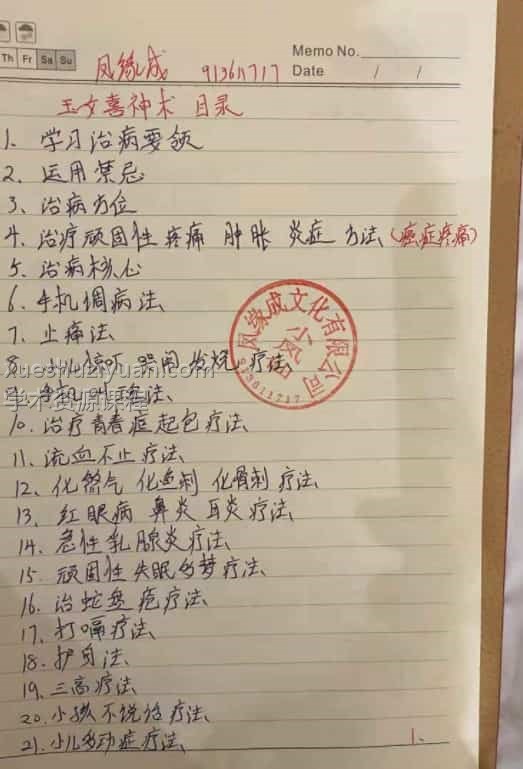 Memo No.
Th Fr Sa Su
Date / /
凤缘成 913611717
玉女喜神术 目录
1、学习治病要领
2、运用禁忌
3、治病方位
4、治疗顽固性 疼痛 肿胀 炎症 方法（癌症疼痛）
5、治病核心
6、手机调病法
7、止痛法
8、小儿 发烧 疗法
9、手机 法
10、治疗青春痘起包疗法
11、流血不止疗法
12、化煞气 化鱼刺 化骨刺 疗法
13、红眼病 鼻炎 耳炎 疗法
14、急性乳腺炎疗法
15、顽固性失眠多梦疗法
16、治蛇盘疮疗法
17、打嗝疗法
18、护身法
19、三高疗法
20、小孩不说话疗法
21、小儿多动症疗法
1、
凤缘成文化有限公司
913611717
xueshuziyuan.com
学术资源课程